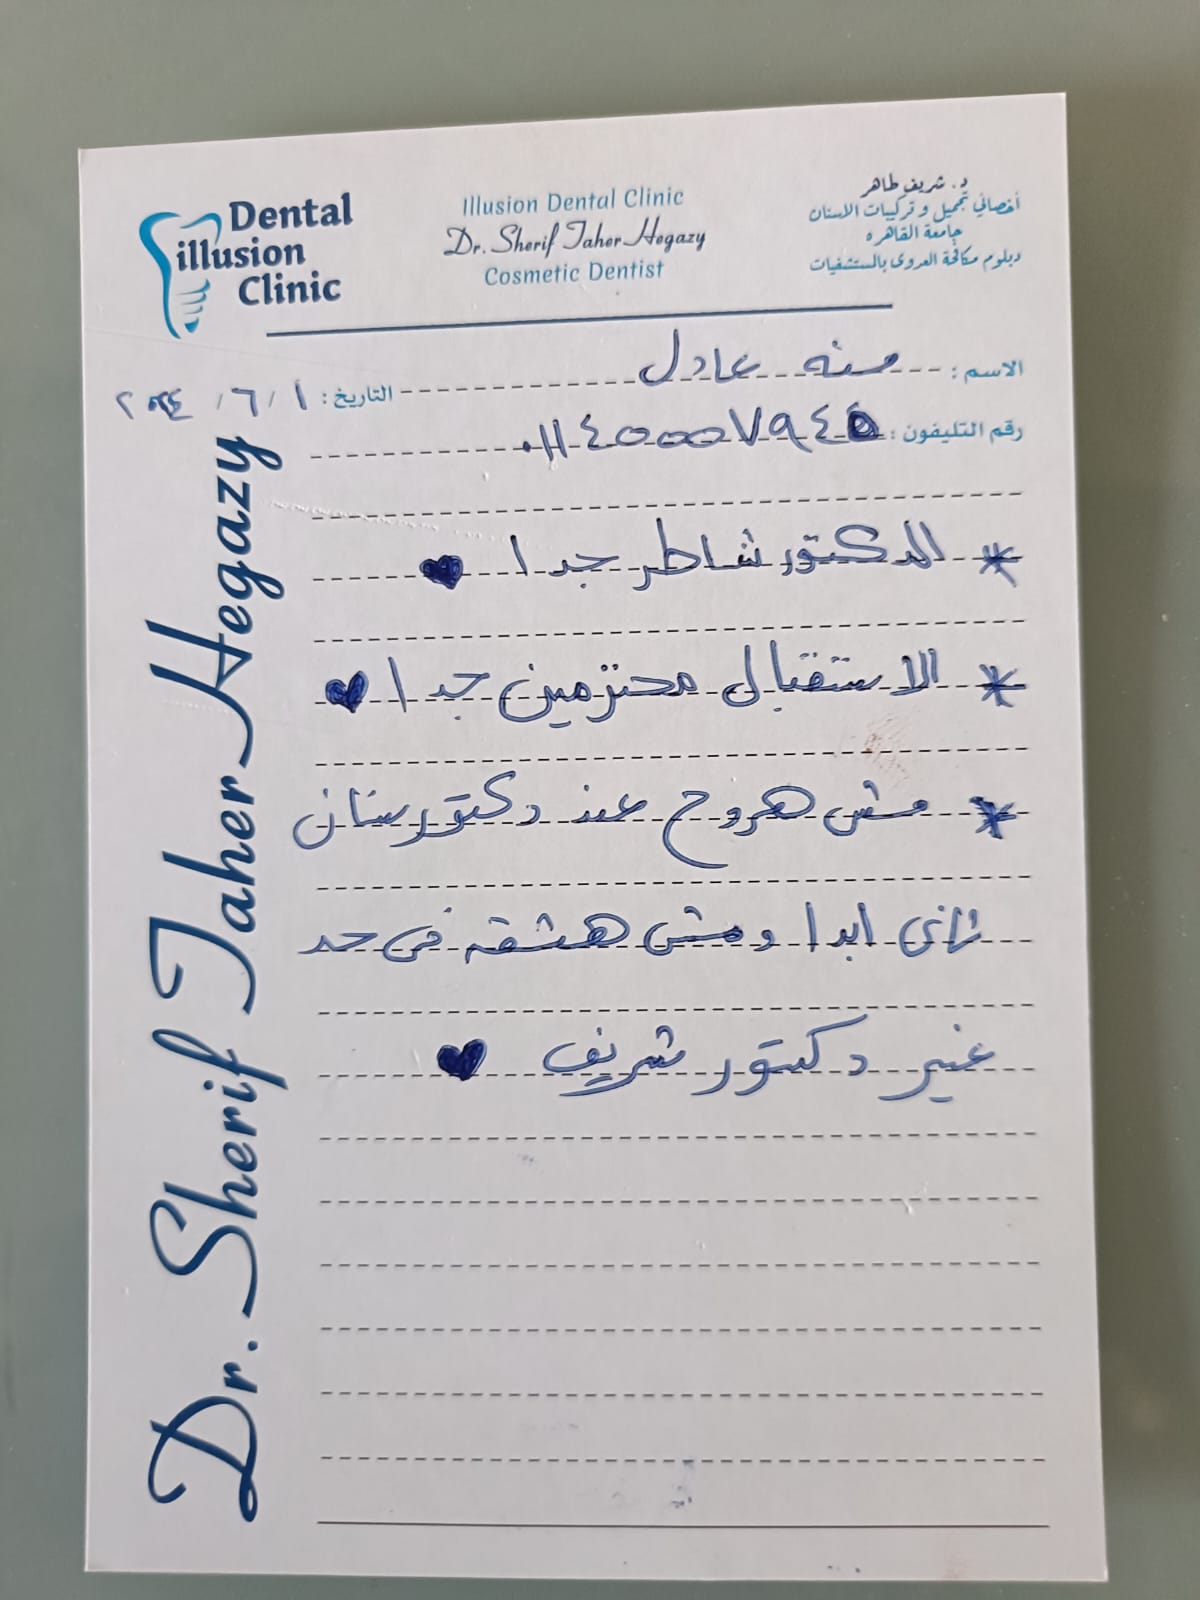 Dental
illusion
Clinic
Illusion Dental Clinic
Dr. Sherif Taher Hegazy
Cosmetic Dentist
د. شريف طاهر
أخصائي تجميل و تركيبات الاسنان
جامعة القاهره
دبلوم مكافحة العدوى بالمستشفيات
الاسم : منه عادل
التاريخ : ١ / ٦ / ٢٠٢٤
رقم التليفون :
* الدكتور شاطر جدا ♥
* الاستقبال محترمين جدا ♥
* مش هروح عند دكتور سنان
تانى ابدا و مش هثق فى حد
غير دكتور شريف ♥
Dr. Sherif Taher Hegazy